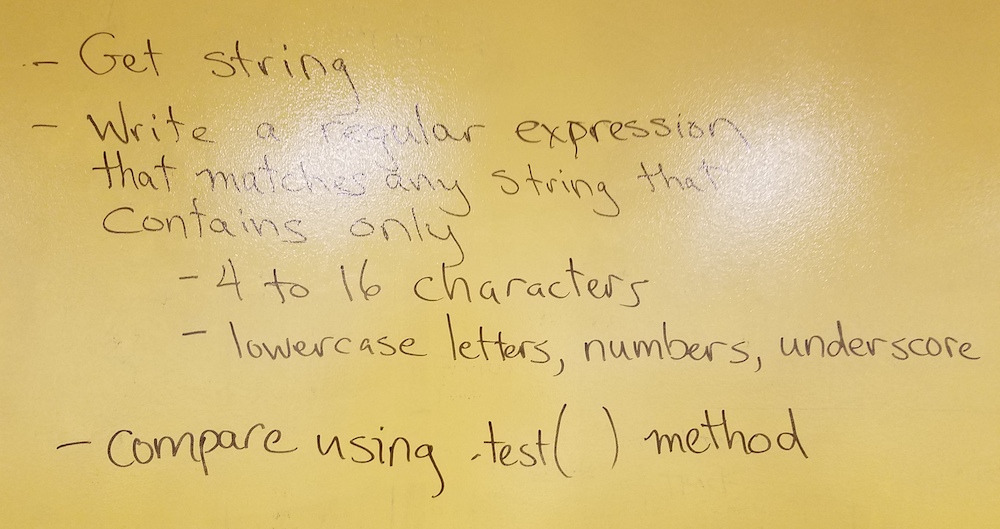 - Get string
- Write a regular expression
that matches any string that
contains only
- 4 to 16 characters
- lowercase letters, numbers, underscore
- compare using .test( ) method